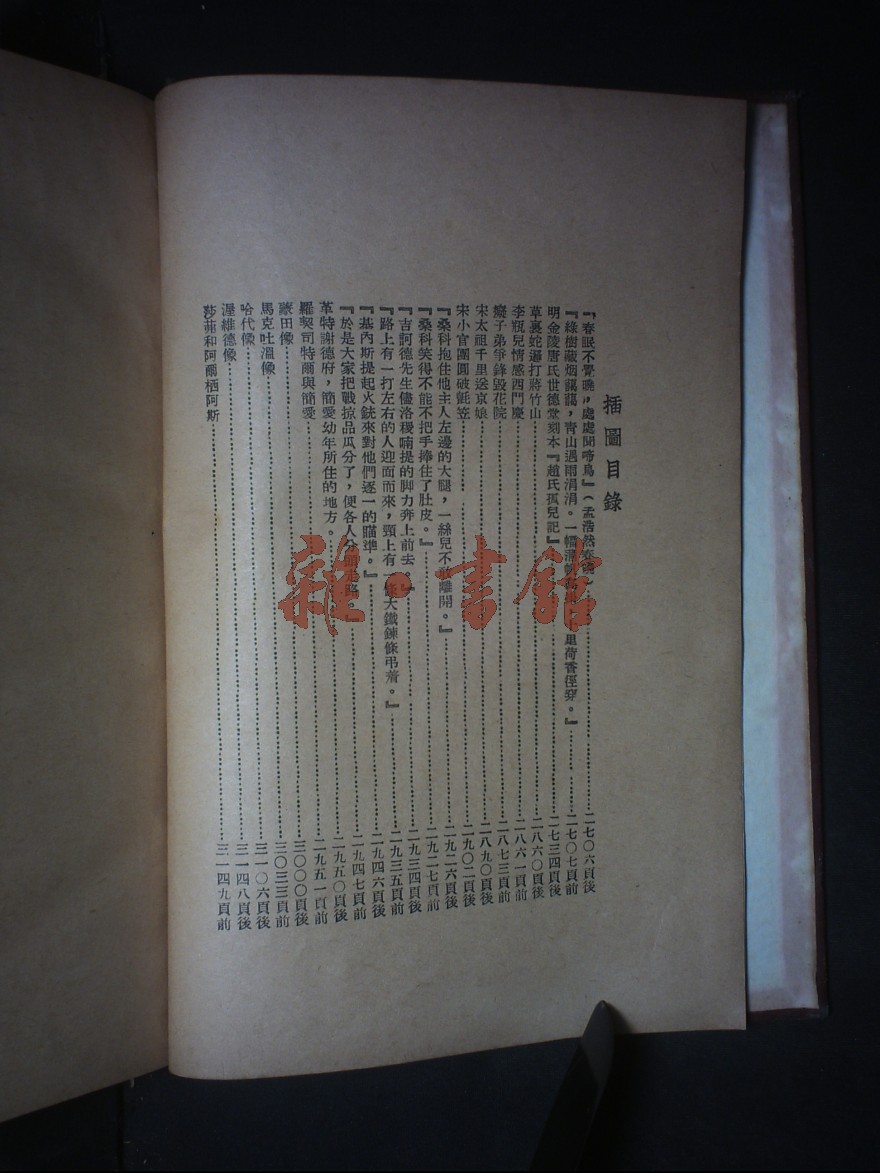 插圖目錄
『「春眠不覺曉」，處處聞啼鳥』（孟浩然春 二七〇六頁後
『綠樹蔽烟靄靄，青山過雨涓涓。一 里荷香徑穿。』 二七〇七頁前
明金陵唐氏世德堂刻本『趙氏孤兒記』 二七三四頁後
草裏蛇邏打蔣竹山 二八六〇頁後
李瓶兒情感西門慶 二八六一頁前
癡子弟爭鋒毀花院 二八七三頁前
宋太祖千里送京娘 二八九〇頁後
宋小官團圓破氈笠 二九〇二頁後
『桑科抱住他主人左邊的大腿，一絲兒不敢離開。』 二九二六頁後
『桑科笑得不能不把手捧住了肚皮。』 二九二七頁前
『吉訶德先生儘洛稷喃提的脚力奔上前去。』 二九三四頁後
『路上有一打左右的人迎面而來，頸上有一條大鐵鍊條弔着。』 二九三五頁前
『基內斯提起火銃來對他們逐一的瞄準。』 二九四六頁後
『於是大家把戰掠品瓜分了，便各人分頭走路 二九四七頁前
革特謝德府，簡愛幼年所住的地方。 二九五〇頁後
羅契司特爾與簡愛 二九五一頁前
蒙田像 三〇〇〇頁後
馬克吐溫像 三〇三三頁前
哈代像 三一〇六頁後
渥維德像 三一四八頁後
莎茀和阿爾栖阿斯 三一四九頁前
雜·書館